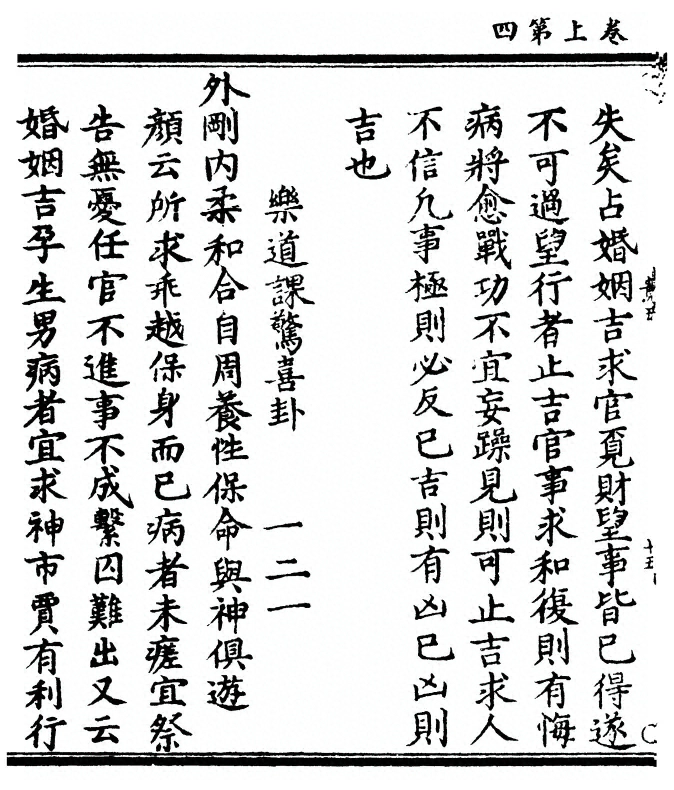 四第上卷
失矣占婚姻吉求官覓財望事皆已得遂
不可過望行者止吉官事求和復則有悔
病將愈戰功不宜妄躁見則可止吉求人
不信凡事極則必反已吉則有凶已凶則
吉也
樂道課驚喜卦 一二一
外剛内柔和合自周養性保命與神俱遊
顔云所求乖越保身而已病者未瘥宜祭
告無憂任官不進事不成繫囚難出又云
婚姻吉孕生男病者宜求神市賈有利行